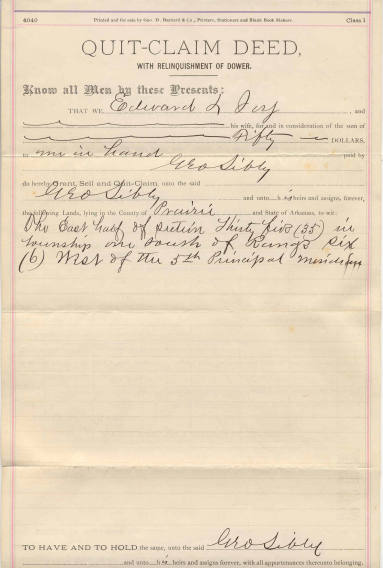 4040 Printed and for sale by Geo. D. Barnard & Co., Printers, Stationers and Blank Book Makers. Class 1
QUIT-CLAIM DEED,
WITH RELINQUISHMENT OF DOWER.
Know all Men by these Presents:
THAT WE, Edward L , and
his wife, for and in consideration of the sum of
Fifty DOLLARS,
to me in hand paid by
Geo Sibly
do hereby Grant, Sell and Quit-Claim, unto the said
Geo Sibly
and unto his heirs and assigns, forever,
the following Lands, lying in the County of Prairie and State of Arkansas, to wit:
The East half of section Thirty five (35) in
township one south of Range six
(6) West of the 5th Principal meridian
TO HAVE AND TO HOLD the same, unto the said Geo Sibly
and unto his heirs and assigns forever, with all appurtenances thereunto belonging.